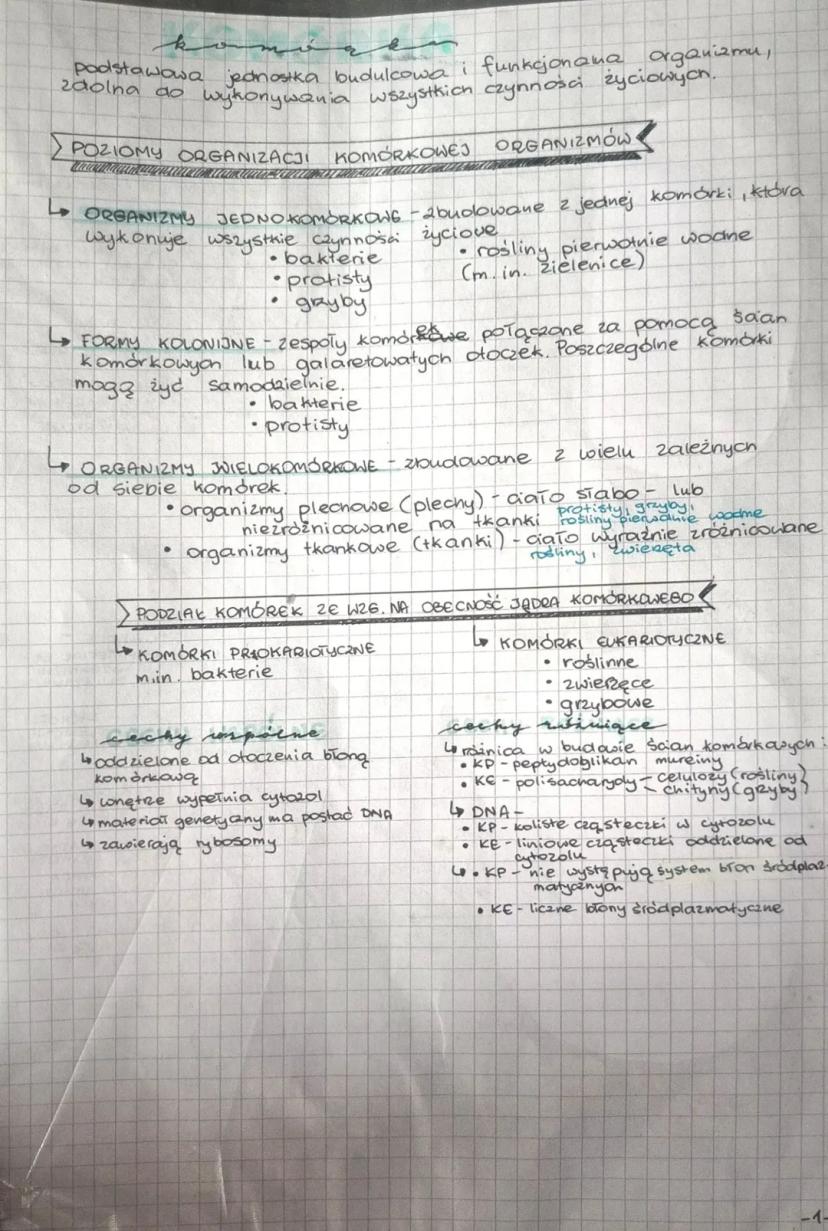 komórka
podstawowa jednostka budulcowa i funkcjonalna organizmu,
zdolna do wykonywania wszystkich czynności życiowych.
POZIOMY ORGANIZACJI KOMÓRKOWEJ ORGANIZMÓW
↳ ORGANIZMY JEDNOKOMÓRKOWE - zbudowane z jednej komórki, która
wykonuje wszystkie czynności życiowe
• bakterie
• protisty
• grzyby
• rośliny pierwotnie wodne
(m.in. zielenice)
↳ FORMY KOLONIJNE - zespoły komórek połączone za pomocą ścian
komórkowych lub galaretowatych otoczek. Poszczególne komórki
mogą żyć samodzielnie.
• bakterie
• protisty
↳ ORGANIZMY WIELOKOMÓRKOWE - zbudowane z wielu zależnych
od siebie komórek.
• organizmy plechowe (plechy) - ciało słabo - lub
niezróżnicowane na tkanki protisty, grzyby,
rośliny pierwotnie wodne
• organizmy tkankowe (tkanki) - ciało wyraźnie zróżnicowane
rośliny, zwierzęta
PODZIAŁ KOMÓREK ZE WZG. NA OBECNOŚĆ JĄDRA KOMÓRKOWEGO
↳ KOMÓRKI PROKARIOTYCZNE
m.in. bakterie
↳ KOMÓRKI EUKARIOTYCZNE
• roślinne
• zwierzęce
• grzybowe
cechy wspólne
↳ oddzielone od otoczenia błoną
komórkową
↳ wnętrze wypełnia cytozol
↳ materiał genetyczny ma postać DNA
↳ zawierają rybosomy
cechy różniące
↳ różnica w budowie ścian komórkowych:
• KP - peptydoblikan mureiny
• KE - polisacharydy - celulozy (rośliny)
- chityny (grzyby)
↳ DNA -
• KP - koliste cząsteczki w cytozolu
• KE - liniowe cząsteczki oddzielone od
cytozolu
↳ • KP - nie występują system błon śródplaz-
matycznych
• KE - liczne błony śródplazmatyczne
-1-